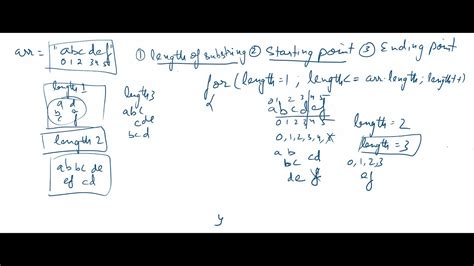 arr = "abcdef"
0 1 2 3 4 5
① length of substring ② Starting point ③ Ending point
for (length=1 ; length<= arr.length; length++)
{
length 1
a d
b e
c f
length 2
ab bc de
ef cd
length 3
abc
cde
bcd
0 1 2 3 4 5
a b c d e f
0 1 2 3 4 5
0, 1, 2, 3, 4,
ab cd
bc
de
length = 2
length = 3
0, 1, 2, 3
ef
y